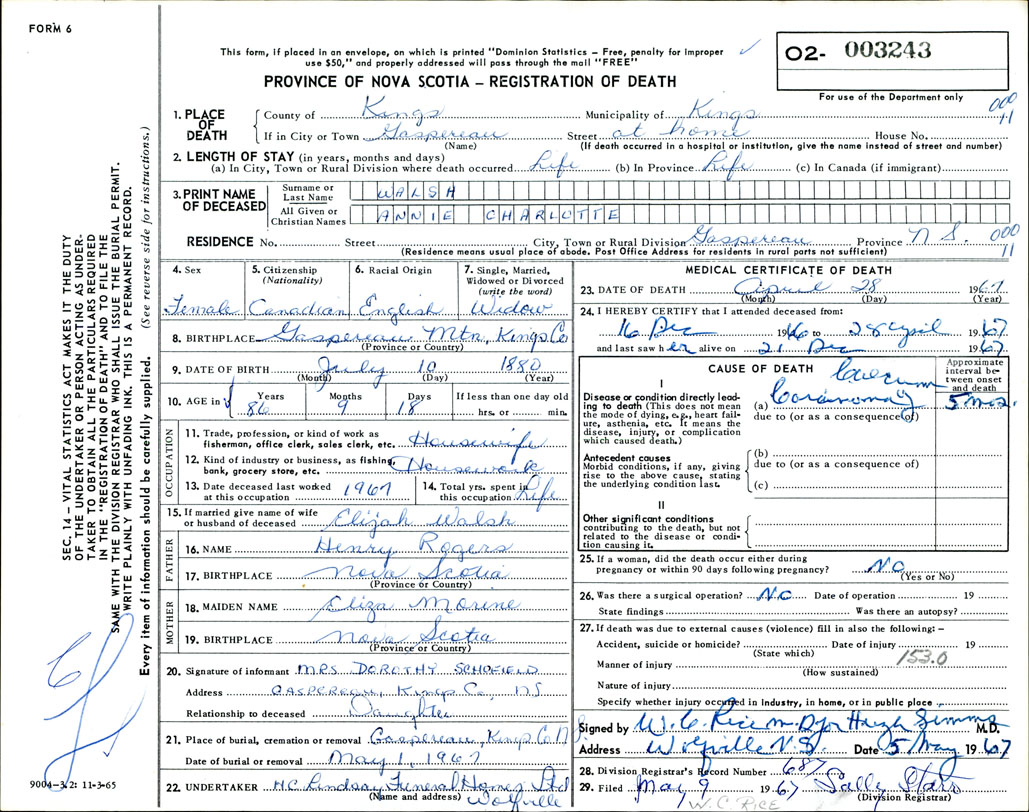 FORM 6
This form, if placed in an envelope, on which is printed "Dominion Statistics – Free, penalty for improper
use $50," and properly addressed will pass through the mail "FREE"
PROVINCE OF NOVA SCOTIA – REGISTRATION OF DEATH
O2- 003243
For use of the Department only
000
11
1. PLACE OF DEATH
County of Kings Municipality of Kings
If in City or Town Gaspereau Street at home House No.
(Name) (If death occurred in a hospital or institution, give the name instead of street and number)
2. LENGTH OF STAY (in years, months and days)
(a) In City, Town or Rural Division where death occurred Life (b) In Province Life (c) In Canada (if immigrant)
3. PRINT NAME OF DECEASED
Surname or Last Name WALSH
All Given or Christian Names ANNIE CHARLOTTE
RESIDENCE No. Street City, Town or Rural Division Gaspereau Province N S. 000
11
(Residence means usual place of abode. Post Office Address for residents in rural parts not sufficient)
4. Sex 5. Citizenship (Nationality) 6. Racial Origin 7. Single, Married, Widowed or Divorced (write the word)
Female Canadian English Widow
8. BIRTHPLACE Gaspereau Mtn, Kings Co
(Province or Country)
9. DATE OF BIRTH July 10 1880
(Month) (Day) (Year)
10. AGE in Years Months Days If less than one day old
86 9 18 hrs. or min.
OCCUPATION
11. Trade, profession, or kind of work as
fisherman, office clerk, sales clerk, etc. Housewife
12. Kind of industry or business, as fishing,
bank, grocery store, etc. Housework
13. Date deceased last worked at this occupation 1967 14. Total yrs. spent in this occupation Life
15. If married give name of wife
or husband of deceased Elijah Walsh
FATHER
16. NAME Henry Rogers
17. BIRTHPLACE Nova Scotia
(Province or Country)
MOTHER
18. MAIDEN NAME Eliza Morine
19. BIRTHPLACE Nova Scotia
(Province or Country)
20. Signature of informant MRS DOROTHY SCHOFIELD
Address GASPEREAU, Kings Co, NS
Relationship to deceased Daughter
21. Place of burial, cremation or removal Gaspereau Kings Co. N.
Date of burial or removal May 1, 1967
22. UNDERTAKER H.C. Lindsay Funeral Homes Ltd
(Name and address) Wolfville
MEDICAL CERTIFICATE OF DEATH
23. DATE OF DEATH April 28 1967
(Month) (Day) (Year)
24. I HEREBY CERTIFY that I attended deceased from:
16 Dec 1966 to 28 April 1967
and last saw her alive on 21 Dec 1967.
CAUSE OF DEATH
Approximate interval between onset and death
I
Disease or condition directly leading to death (This does not mean the mode of dying, e.g., heart failure, asthenia, etc. It means the disease, injury, or complication which caused death.)
(a) Caecum 5 mos.
due to (or as a consequence of)
Antecedent causes
Morbid conditions, if any, giving rise to the above cause, stating the underlying condition last.
(b)
due to (or as a consequence of)
(c)
II
Other significant conditions
contributing to the death, but not related to the disease or condition causing it.
25. If a woman, did the death occur either during
pregnancy or within 90 days following pregnancy? No
(Yes or No)
26. Was there a surgical operation? No Date of operation 19
State findings Was there an autopsy?
27. If death was due to external causes (violence) fill in also the following: –
Accident, suicide or homicide? Date of injury 19
(State which) 153.0
Manner of injury
(How sustained)
Nature of injury
Specify whether injury occurred in industry, in home, or in public place
Signed by W. C. Rice M.D. for Hugh Simms M.D.
Address Wolfville N.S. Date 5 May 1967
28. Division Registrar's Record Number 687
29. Filed May 9 1967 Sally Starr
W.C. RICE (Division Registrar)
SEC. 14 – VITAL STATISTICS ACT MAKES IT THE DUTY
OF THE UNDERTAKER OR PERSON ACTING AS UNDER-
TAKER TO OBTAIN ALL THE PARTICULARS REQUIRED
IN THE "REGISTRATION OF DEATH" AND TO FILE THE
SAME WITH THE DIVISION REGISTRAR WHO SHALL ISSUE THE BURIAL PERMIT.
WRITE PLAINLY WITH UNFADING INK. THIS IS A PERMANENT RECORD.
Every item of information should be carefully supplied. (See reverse side for instructions.)
9004-3.2: 11-3-65